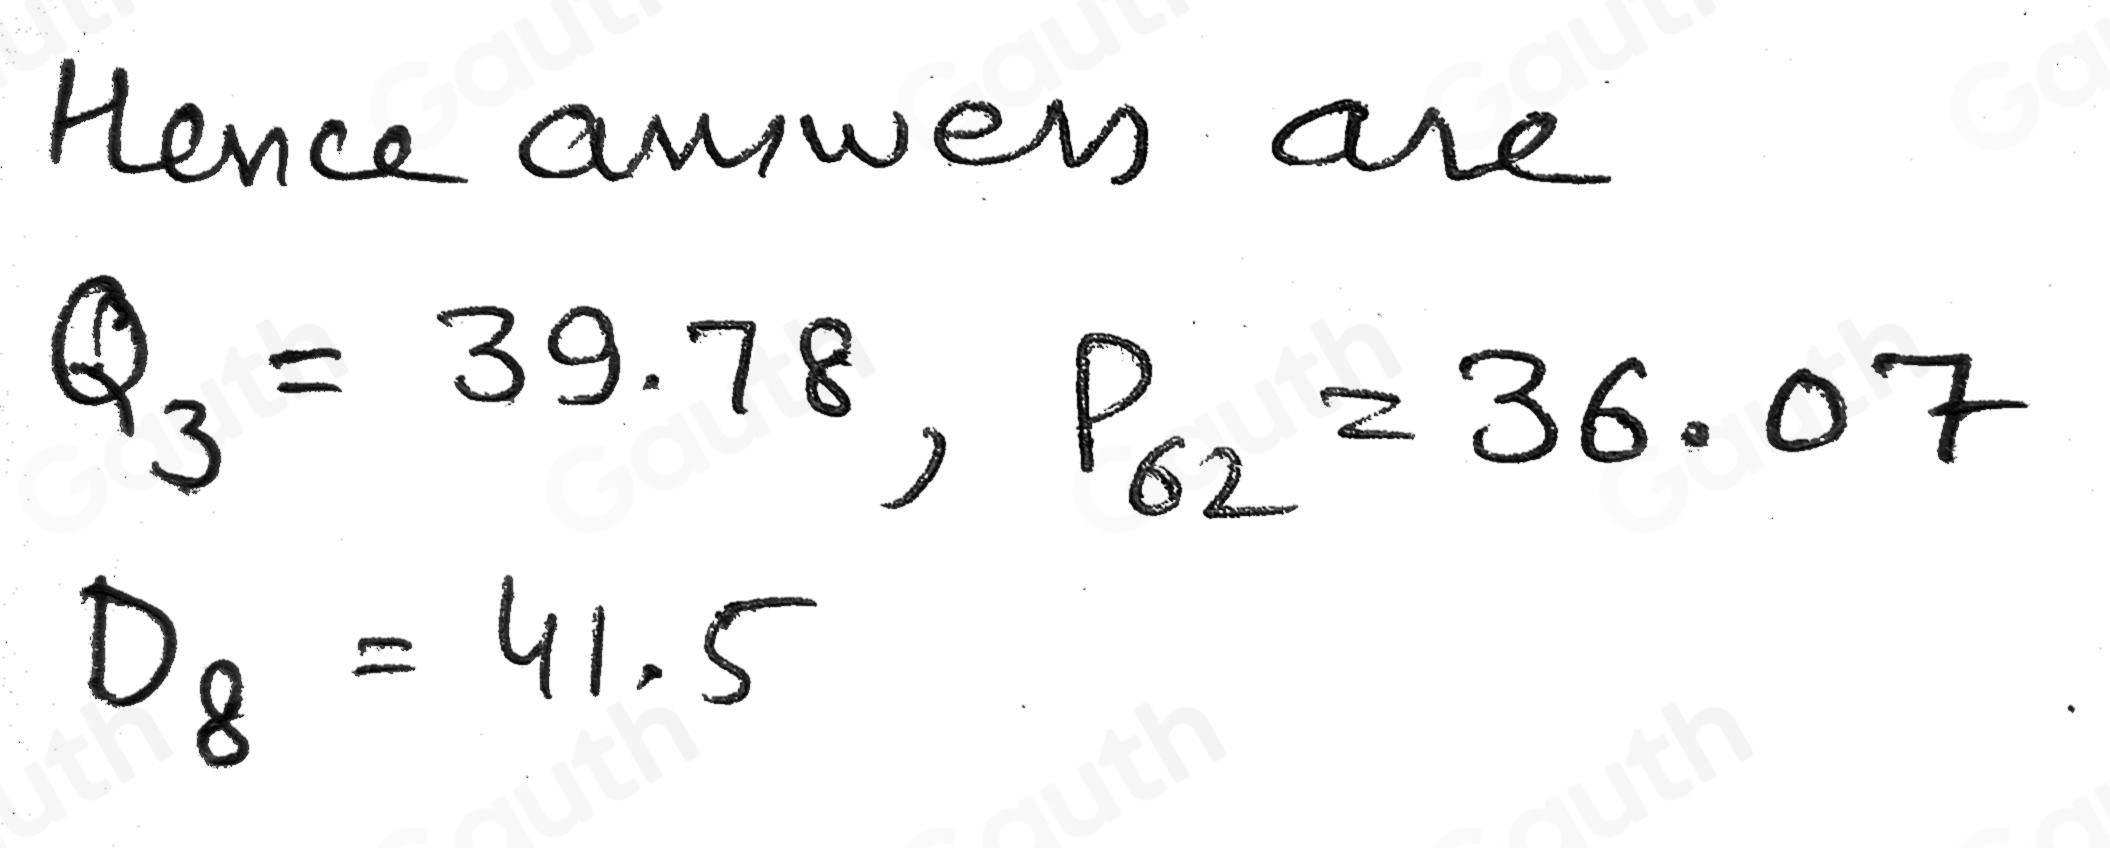 Hence answers are
Q₃ = 39.78, P₆₂ = 36.07
D₈ = 41.5